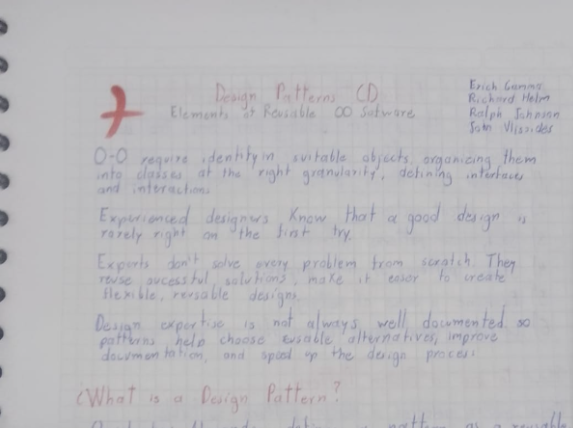 Design Patterns (I)
Elements of Reusable OO Sotware
Erich Gamma
Richard Helm
Ralph Johnson
John Vlissides
O-O require identityin suitable objects, organizing them
into classes at the right granularity, defining interfaces
and interactions
Experienced designers know that a good design is
rarely right on the first try.
Experts don't solve every problem from scratch. They
reuse sucessful solutions, make it easer to create
flexible, reusable designs.
Design expertise is not always well documented, so
patterns help choose ersable alternatives, improve
documentation, and speed up the design process.
(What is a Design Pattern?
a